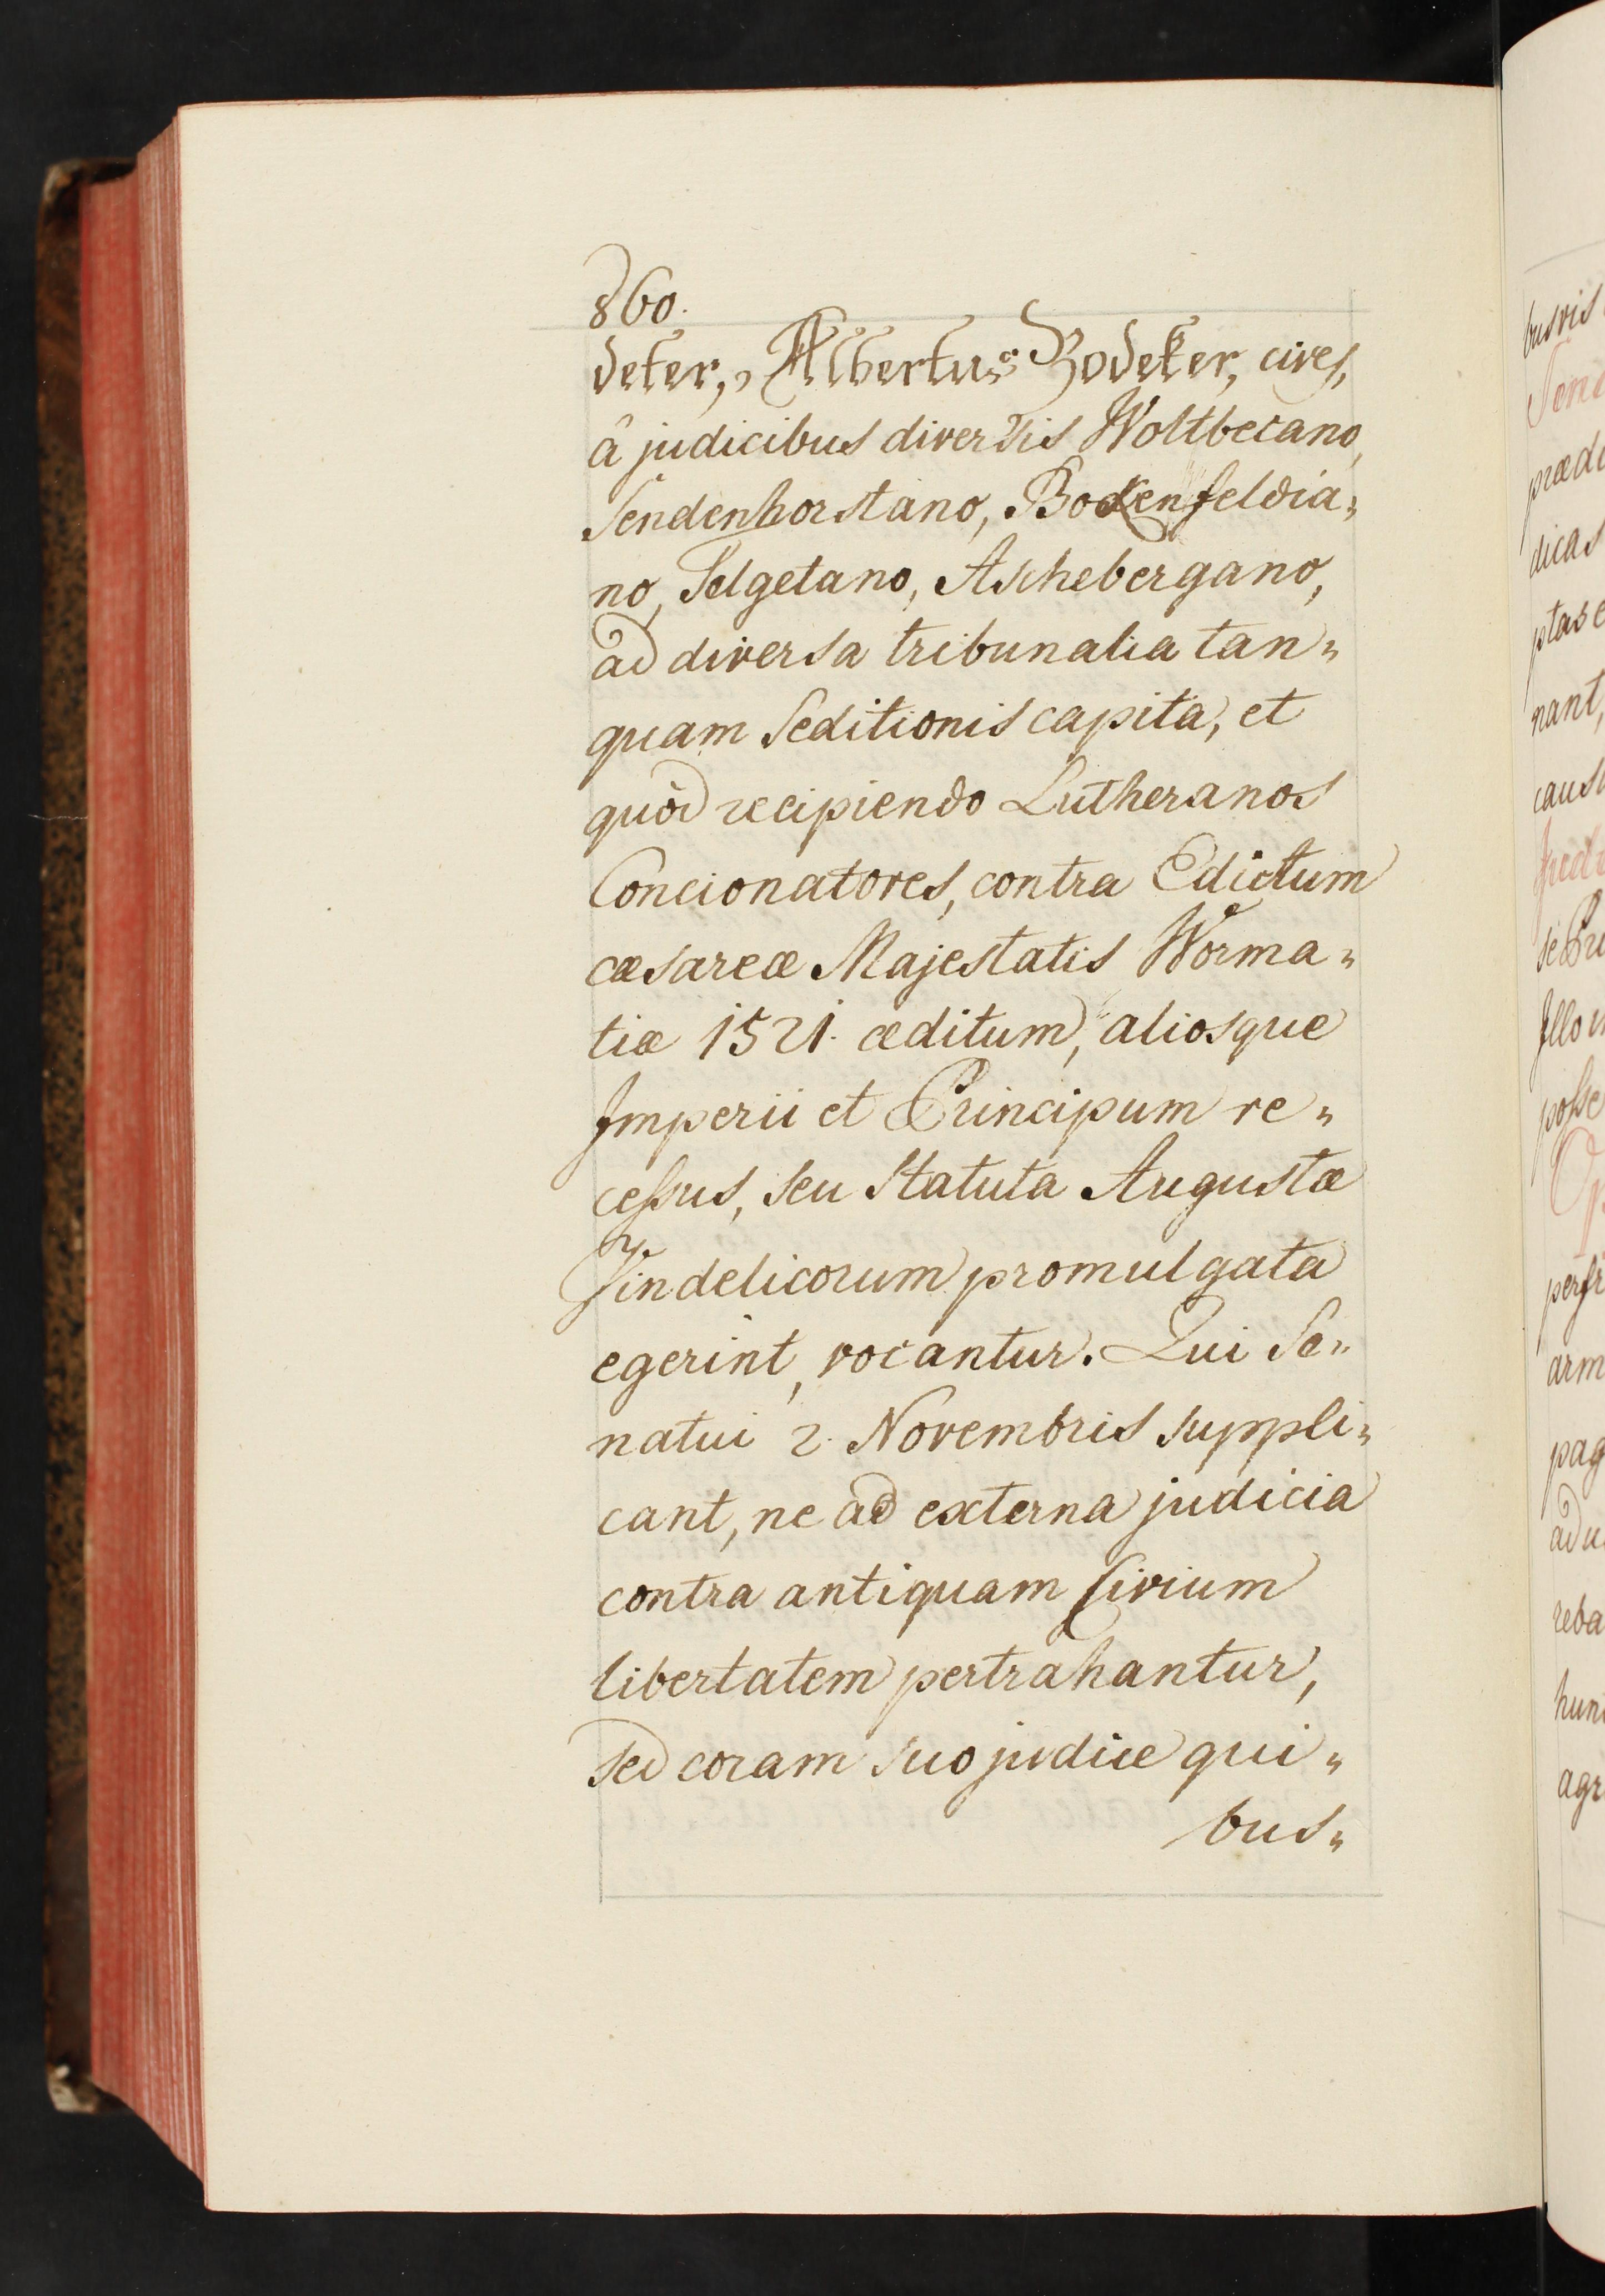 860.
deker,, Albertus Bodeker, cives,
â judicibus diversis Woltbecano,
Sendenhorstano, Bokenfeldia„
no, Telgetano, Aschebergano,
ad diversa tribunalia tan„
quam Seditionis capita, et
quòd recipiendo Lutheranos
Concionatores, contra Edictum
cæsareæ Majestatis Worma„
tiæ 1521. æditum, aliosque
Imperii et Principum re„
cessus, seu Statuta Augustæ
Vindelicorum promulgata
egerint, vocantur. Qui Se„
natui 2. Novembris suppli„
cant, ne ad externa judicia
contra antiquam Civium
libertatem pertrahantur,
sed coram suo judice qui„
bus„